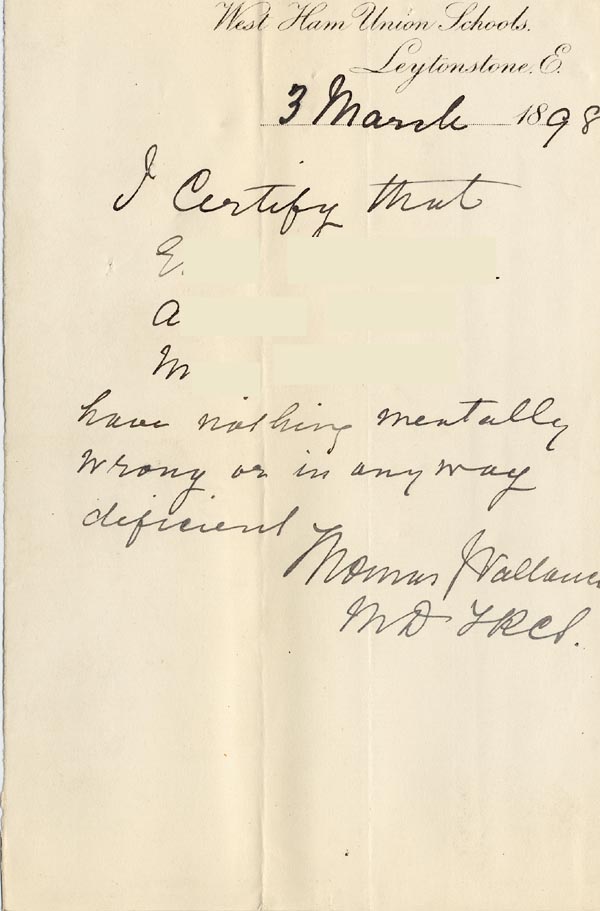 West Ham Union Schools.
Leytonstone. E.
3 March 1898
I Certify that
E.
A
M
have nothing mentally
wrong or in any way
deficient
Thomas J Wallace
MD LRCP.